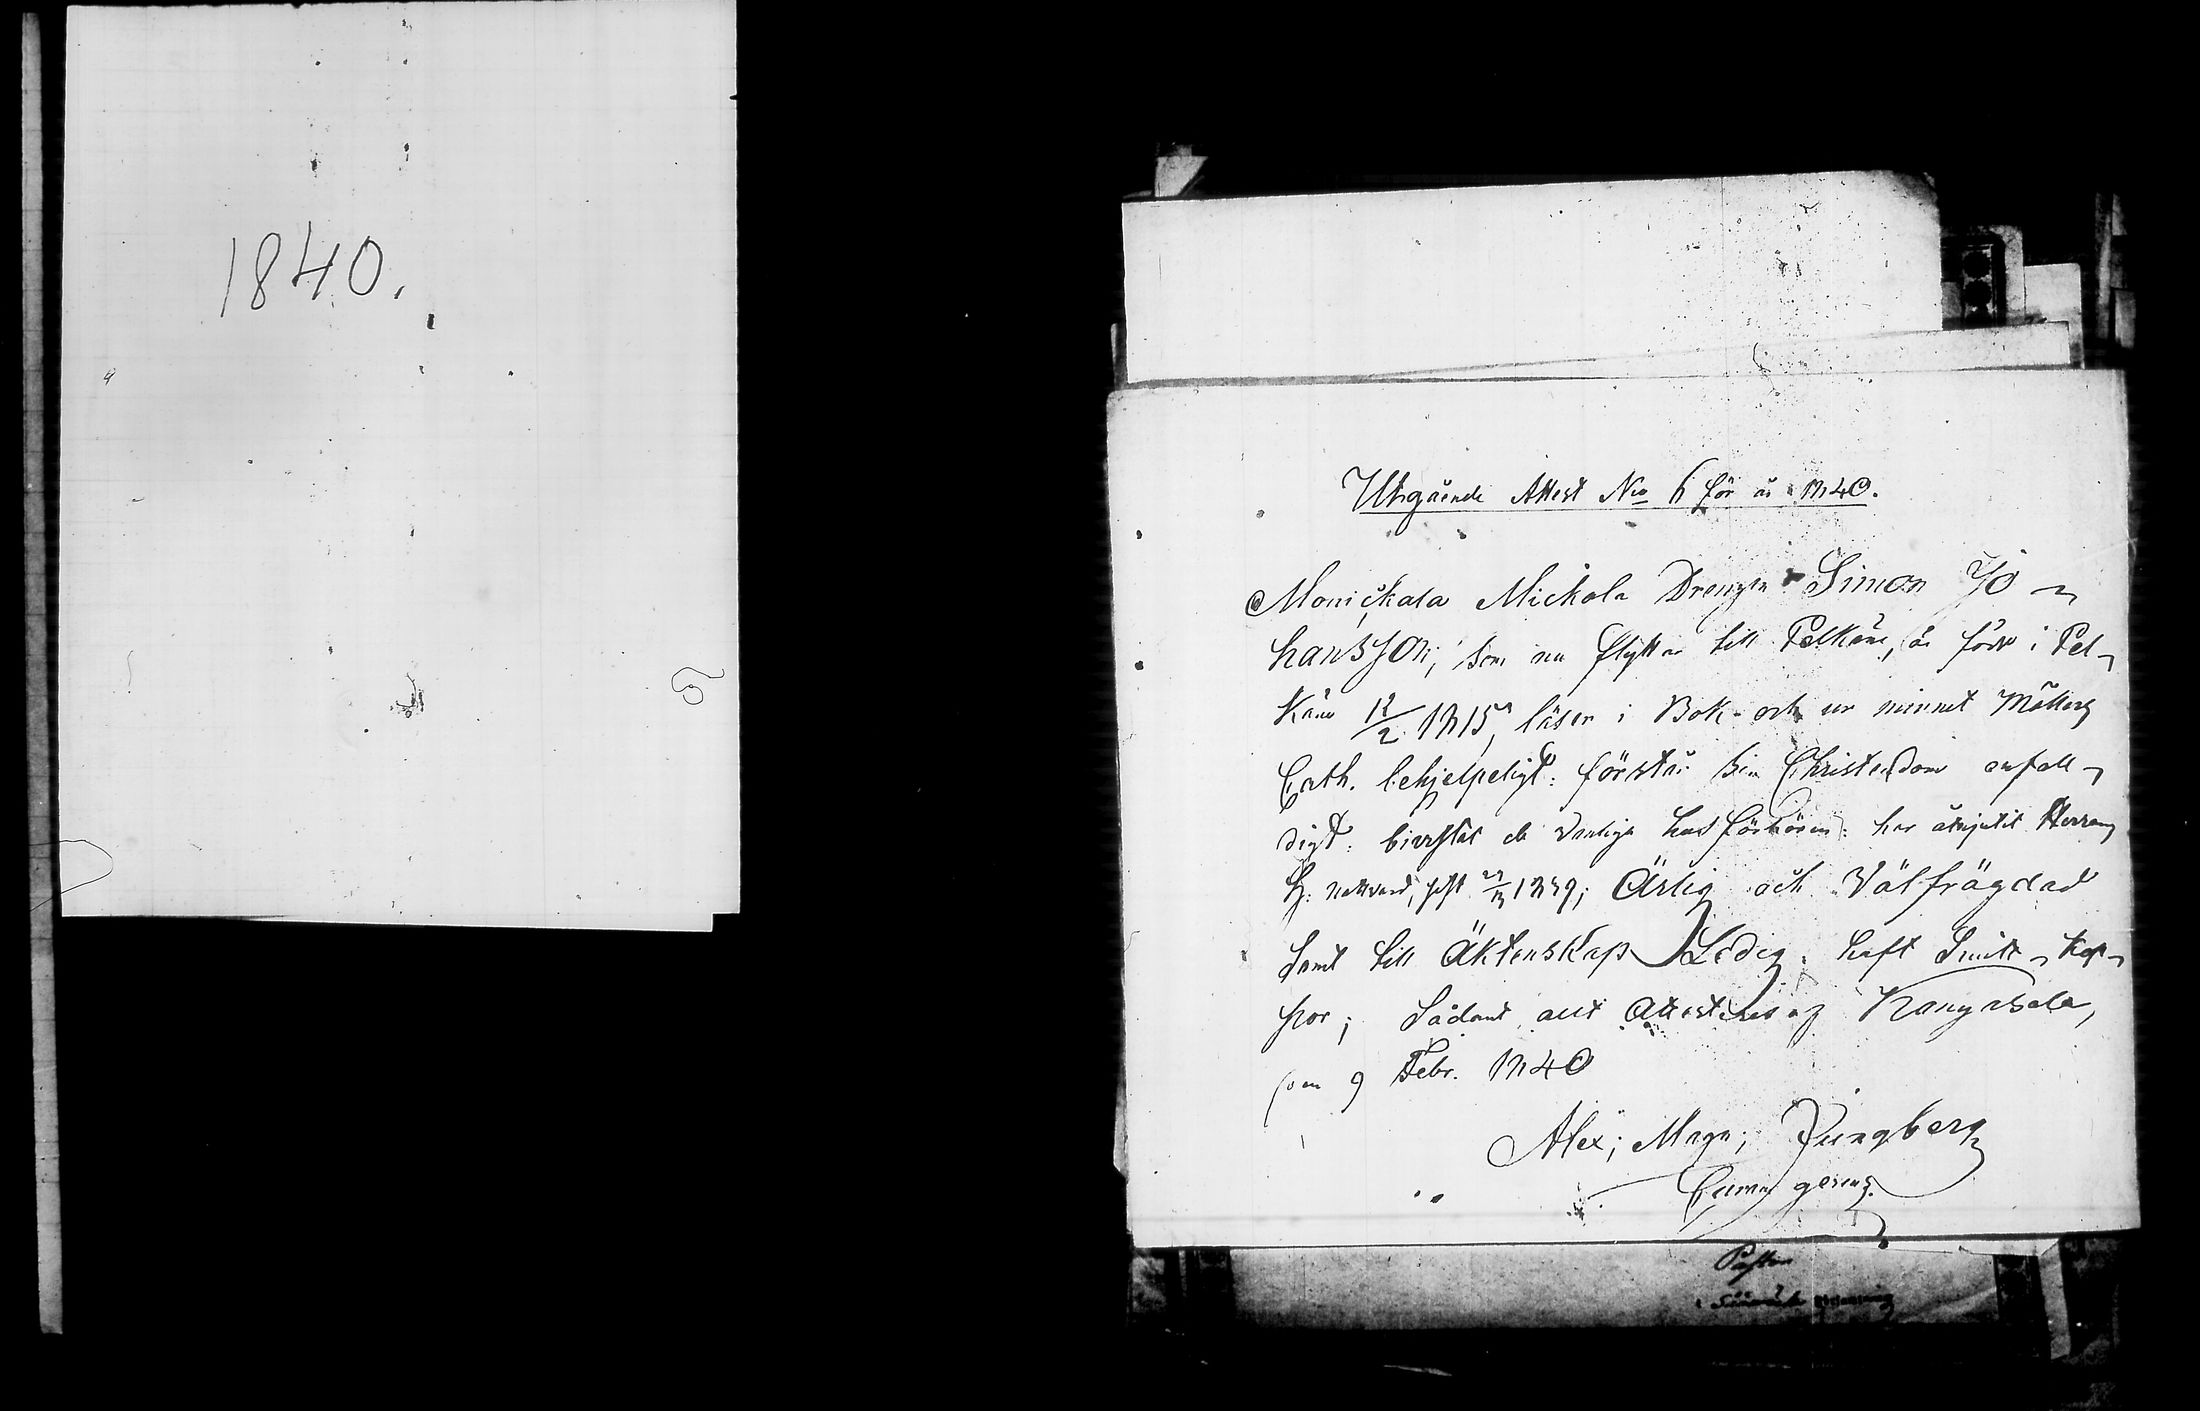 1840.
Utgående Attest No 6 för år 1840.
Monickala Mickola Drengen Simon Jo-
hansson, som nu flyttar till Pelkäne, är född i Pel-
käne 12/2 1815, läser i Bok och ur minnet Måtteng
Cath. behjelpeligt: förstår sin Christendom enfall-
digt: bivistat de vanliga husförhören: har åtnjutit Herrans
H. Nattvard, sist 1839; Ärlig och Välfrägdad
samt till Äktenskap Ledig. haft Smitt-Kop-
por; Sådant allt Attesteras af Kangasala,
den 9 Febr. 1840
Alex; Magn; Ljungberg